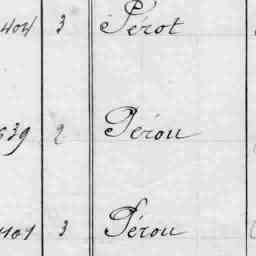 404 3 Pérot
639 2 Pérou
1101 3 Pérou